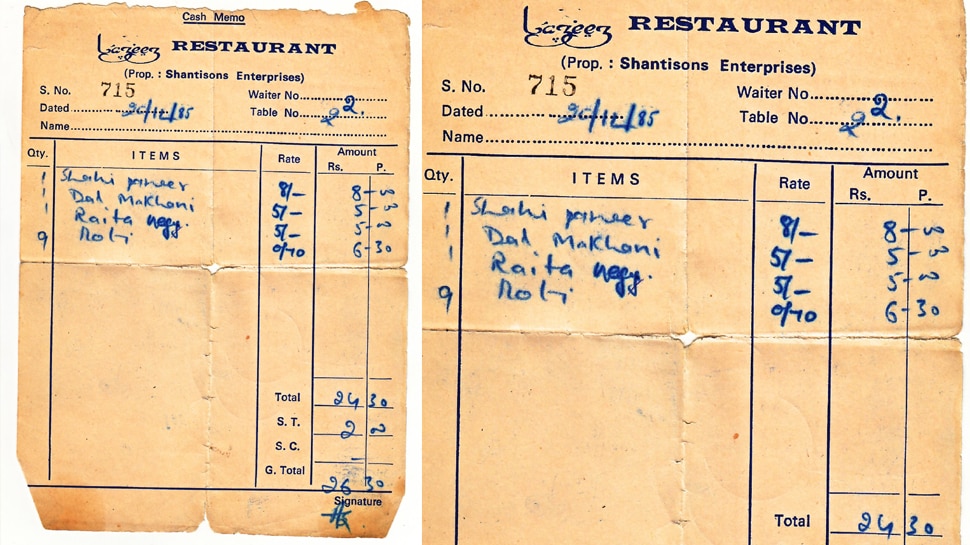 Cash Memo
Lazeez RESTAURANT
(Prop. : Shantisons Enterprises)
S. No. 715 Waiter No. 2.
Dated 26/12/85 Table No. 2
Name
Qty. ITEMS Rate Amount
Rs. P.
1 Shahi paneer 8/- 8-00
1 Dal Makhani 5/- 5-00
1 Raita vegy. 5/- 5-00
9 Roti 0/70 6-30
Total 24 30
S. T. 2 00
S. C. -
G. Total 26 30
Signature
Lazeez RESTAURANT
(Prop. : Shantisons Enterprises)
S. No. 715 Waiter No. 2.
Dated 26/12/85 Table No. 2
Name
Qty. ITEMS Rate Amount
Rs. P.
1 Shahi paneer 8/- 8-00
1 Dal Makhani 5/- 5-00
1 Raita vegy. 5/- 5-00
9 Roti 0/70 6-30
Total 24 30